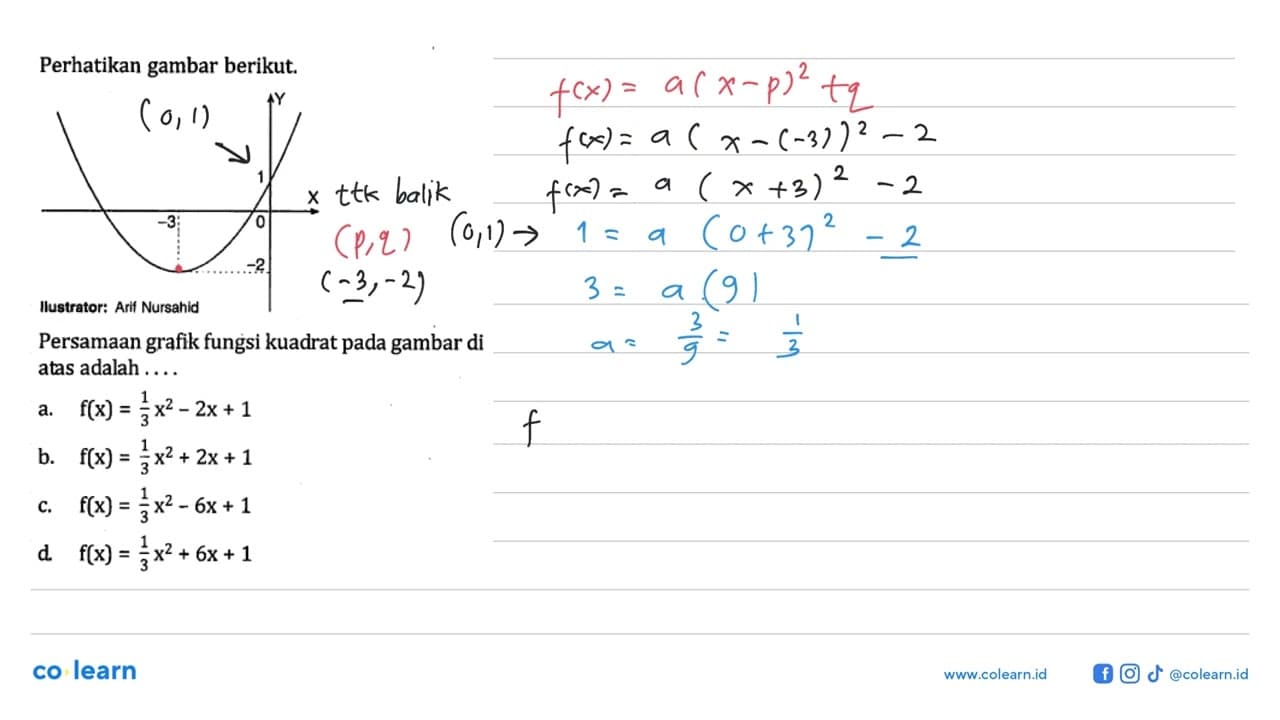 Perhatikan gambar berikut.
Y
(0,1)
1
X
-3
0
-2
ttk balik
(p,q)
(-3,-2)
Ilustrator: Arif Nursahid
Persamaan grafik fungsi kuadrat pada gambar di
atas adalah . . . .
a. f(x) = 1/3 x² – 2x + 1
b. f(x) = 1/3 x² + 2x + 1
c. f(x) = 1/3 x² – 6x + 1
d. f(x) = 1/3 x² + 6x + 1
f(x) = a(x-p)² + q
f(x) = a(x-(-3))² - 2
f(x) = a(x+3)² - 2
(0,1) → 1 = a(0+3)² - 2
3 = a(9)
a = 3/9 = 1/3
f
co learn
www.colearn.id
@colearn.id